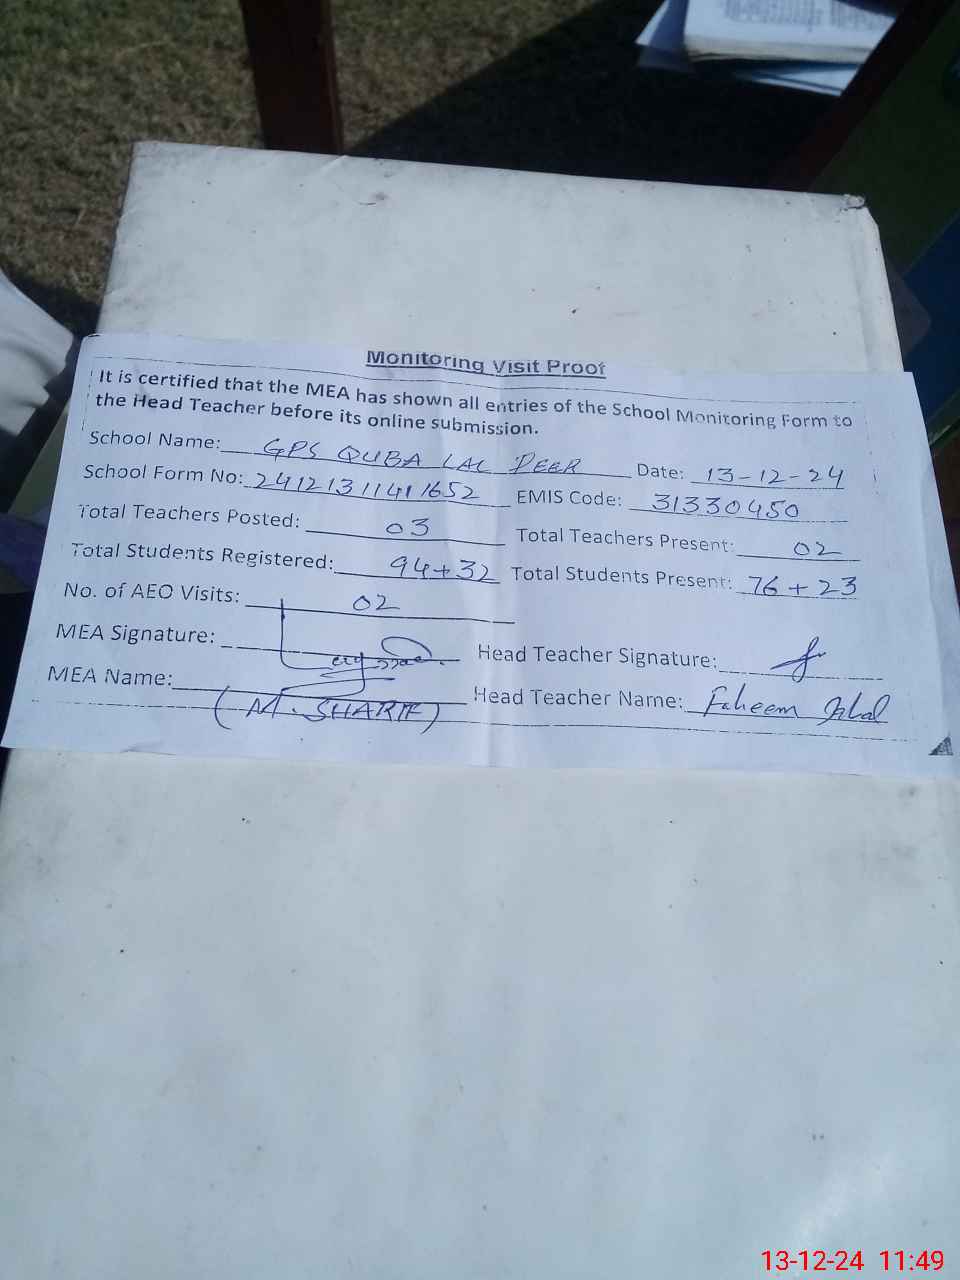 Monitoring Visit Proof
It is certified that the MEA has shown all entries of the School Monitoring Form to
the Head Teacher before its online submission.
School Name: GPS QUBA LAL PEER Date: 13-12-24
School Form No: 24121311411652 EMIS Code: 31330450
Total Teachers Posted: 03 Total Teachers Present: 02
Total Students Registered: 94+32 Total Students Present: 76+23
No. of AEO Visits: 02
MEA Signature: Head Teacher Signature:
MEA Name: (M. SHARIF) Head Teacher Name: Faheem Iqbal
13-12-24 11:49